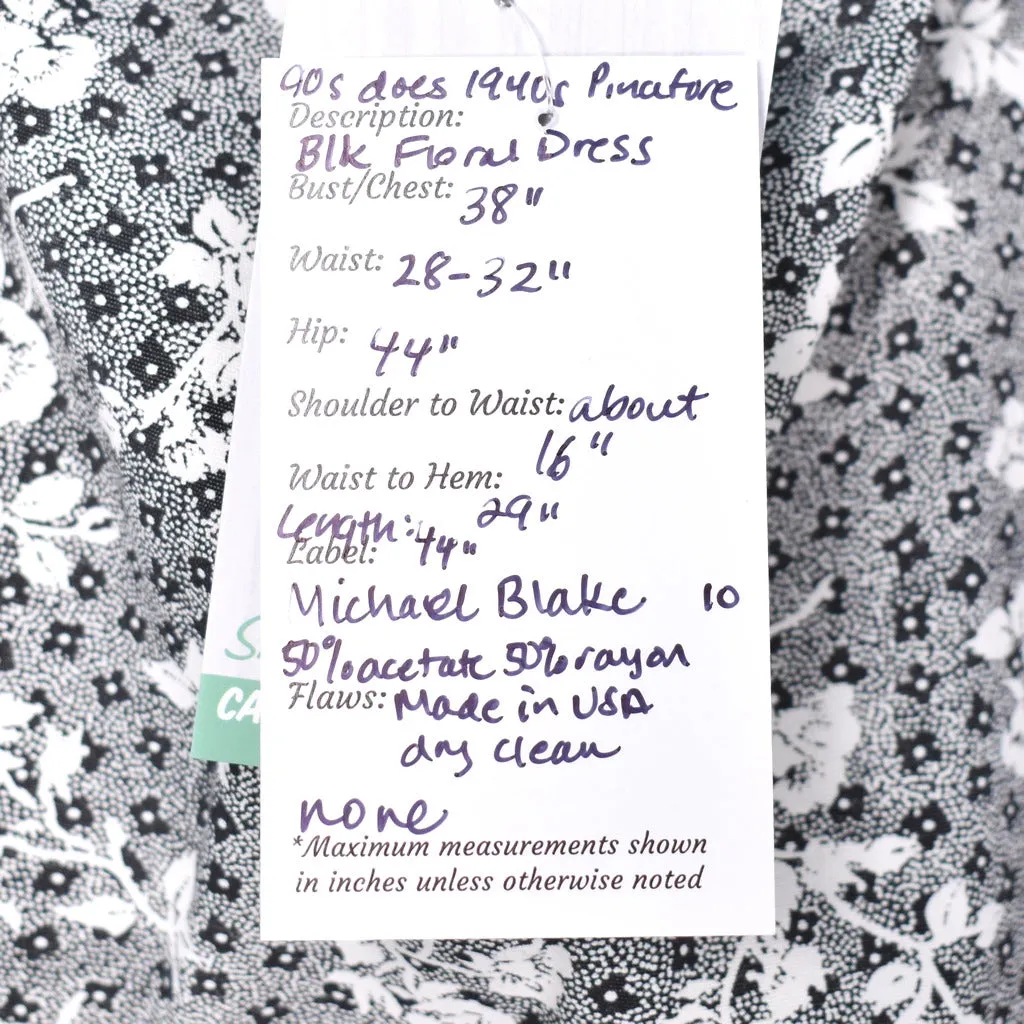 90s does 1940s Pinafore
Description:
Blk Floral Dress
Bust/Chest: 38"
Waist: 28-32"
Hip: 44"
Shoulder to Waist: about
16"
Waist to Hem:
29"
Length: 44"
Label:
Michael Blake 10
50% acetate 50% rayon
Flaws: Made in USA
dry clean
none
*Maximum measurements shown
in inches unless otherwise noted
CA